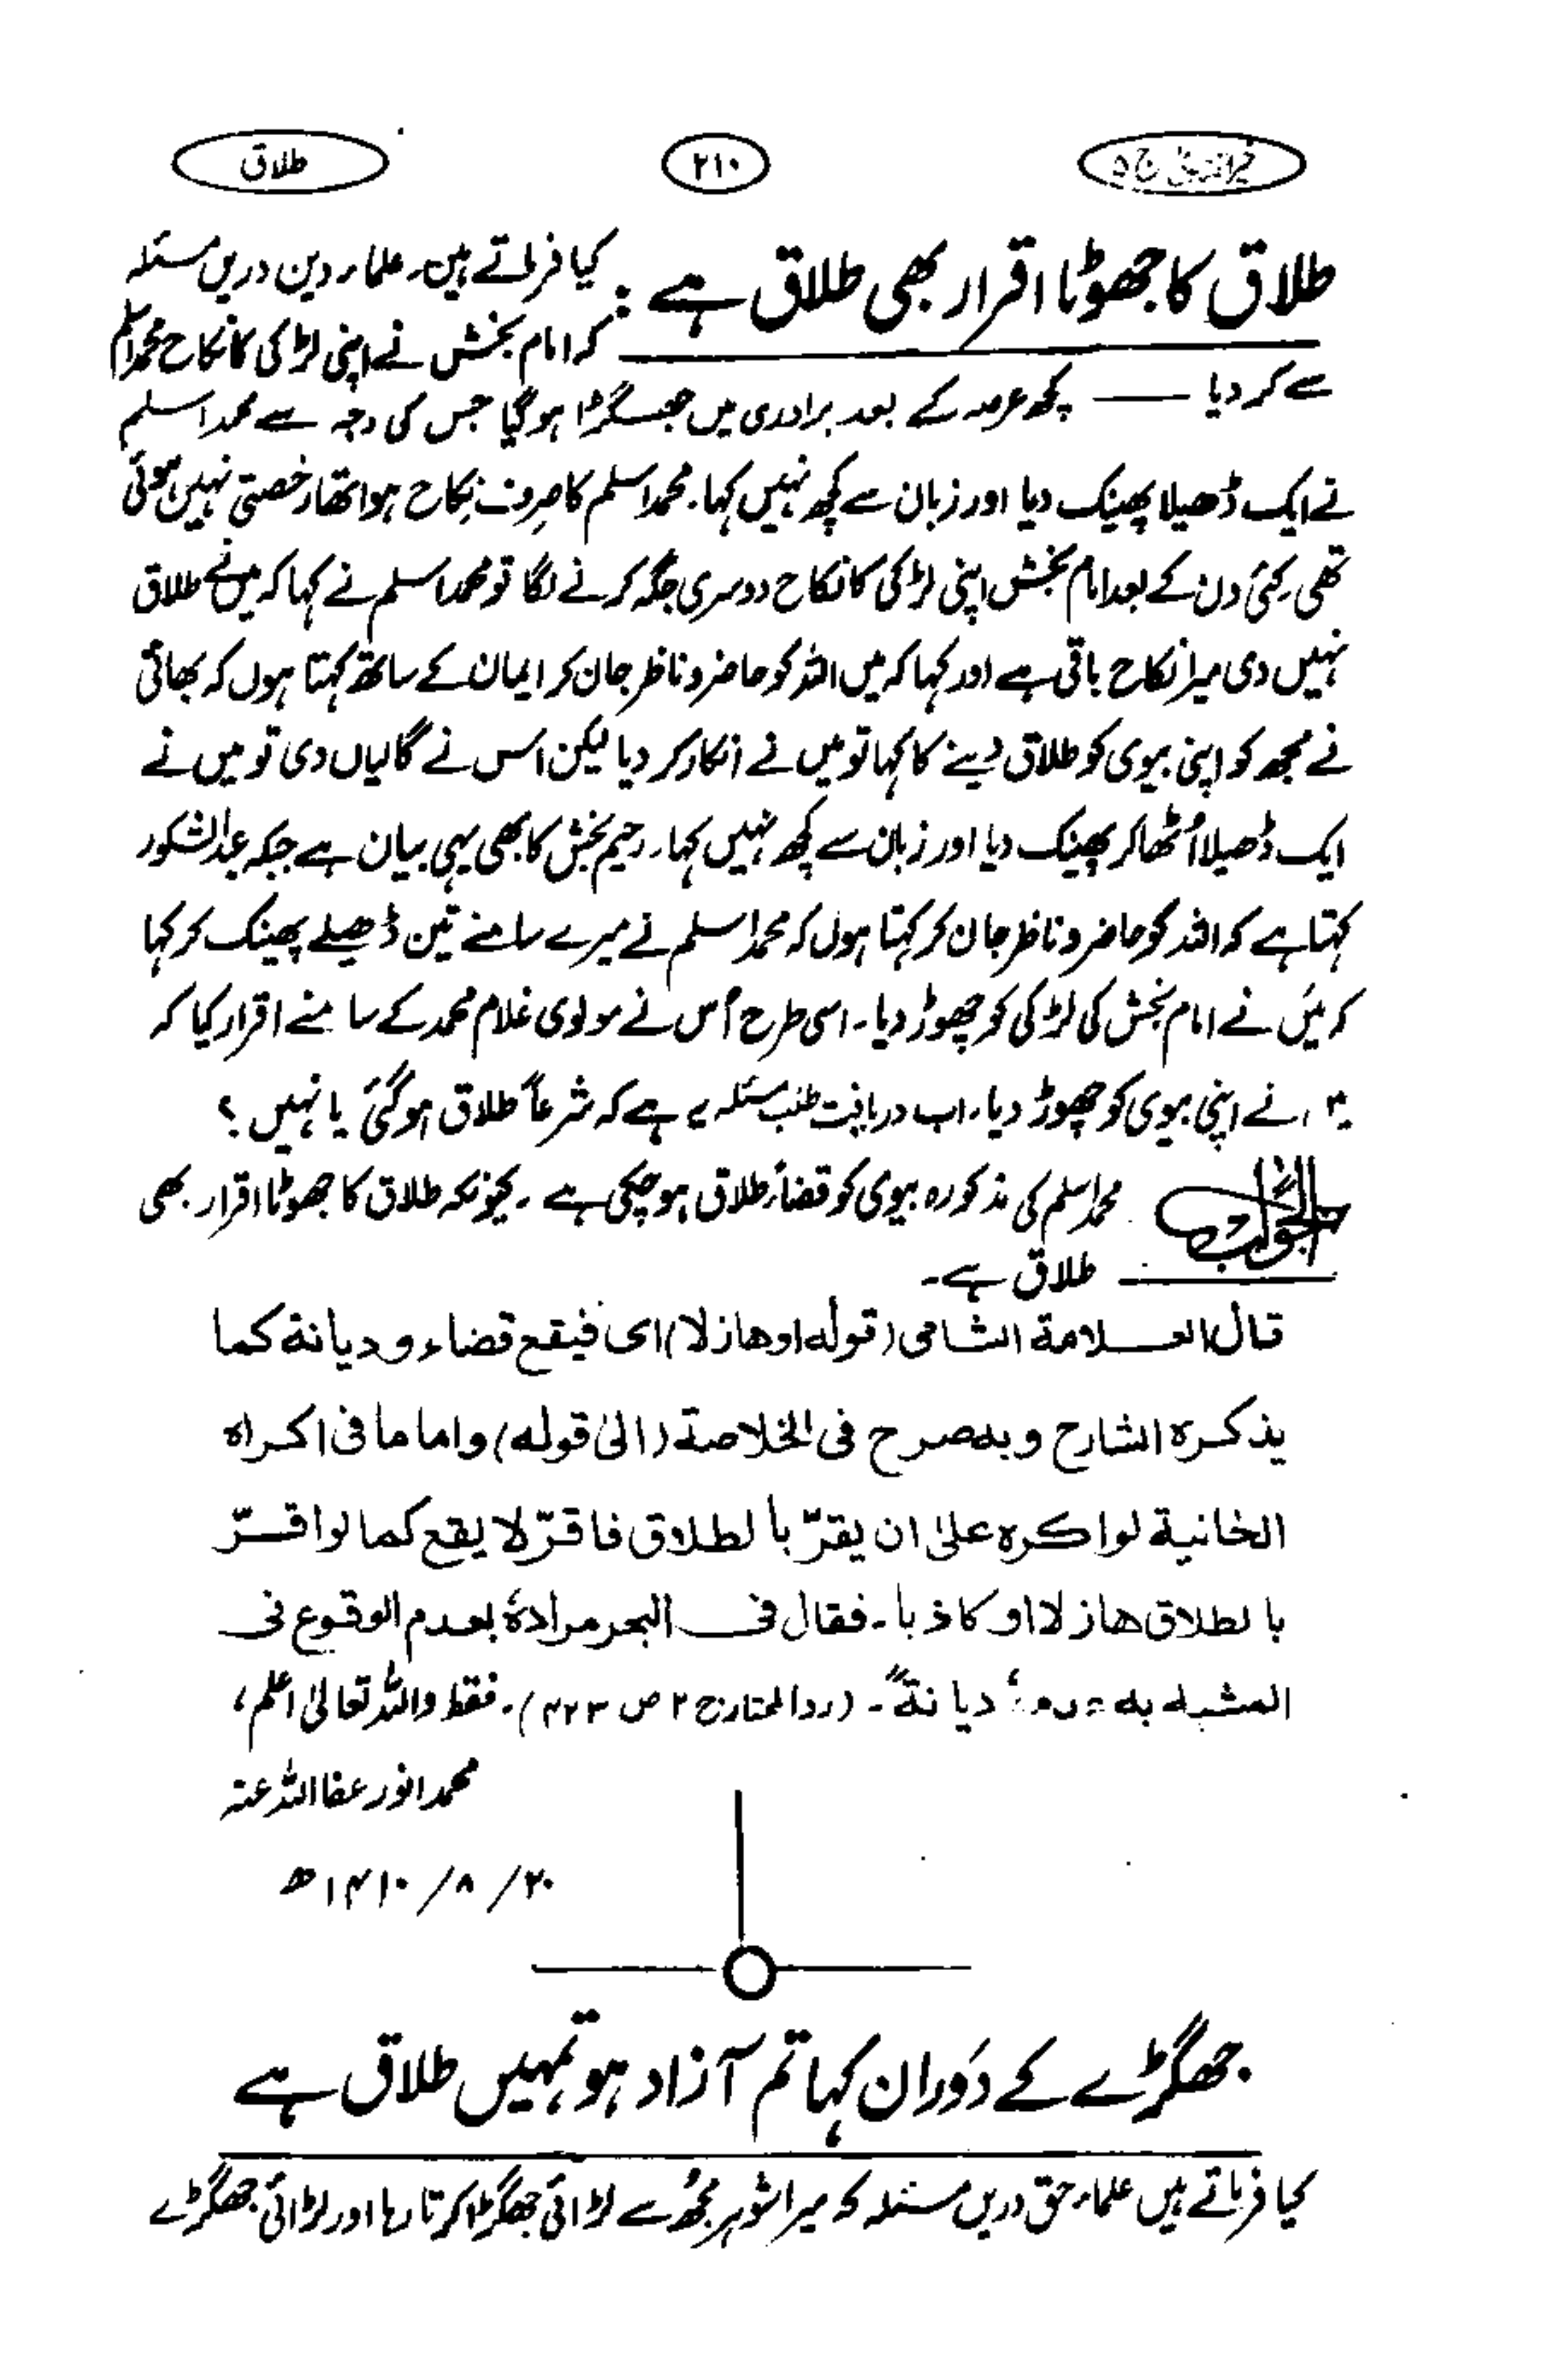 طلاق
۲۱۰
ج ۵
طلاق کا جھوٹا اقرار بھی طلاق ہے :
کیا فرماتے ہیں علماء دین دریں مسئلہ
کہ امام بخش نے اپنی لڑکی کا نکاح محمد اسلم
سے کر دیا —— کچھ عرصہ کے بعد برادری میں جھگڑا ہو گیا جس کی وجہ سے محمد اسلم
نے ایک ڈھیلا پھینک دیا اور زبان سے کچھ نہیں کہا۔ محمد اسلم کا صرف نکاح ہوا تھا رخصتی نہیں ہوئی
تھی کئی دن کے بعد امام بخش اپنی لڑکی کا نکاح دوسری جگہ کرنے لگا تو محمد اسلم نے کہا کہ میں نے طلاق
نہیں دی میرا نکاح باقی ہے اور کہا کہ میں اللہ کو حاضر و ناظر جان کر ایمان کے ساتھ کہتا ہوں کہ بھائی
نے مجھ کو اپنی بیوی کو طلاق دینے کا کہا تو میں نے انکار کر دیا لیکن اس نے گالیاں دی تو میں نے
ایک ڈھیلا اُٹھا کر پھینک دیا اور زبان سے کچھ نہیں کہا۔ رحیم بخش کا بھی یہی بیان ہے جبکہ عبدالشکور
کہتا ہے کہ اللہ کو حاضر و ناظر جان کر کہتا ہوں کہ محمد اسلم نے میرے سامنے تین ڈھیلے پھینک کر کہا
کہ میَں نے امام بخش کی لڑکی کو چھوڑ دیا۔ اسی طرح اُس نے مولوی غلام محمد کے سامنے اقرار کیا کہ
نے اپنی بیوی کو چھوڑ دیا۔ اب دریافت طلب مسئلہ یہ ہے کہ شرعاً طلاق ہو گئی یا نہیں ؟
الجواب محمد اسلم کی مذکورہ بیوی کو قضاءً طلاق ہو چکی ہے۔ کیونکہ طلاق کا جھوٹا اقرار بھی
طلاق ہے۔
قال العلامة الشامی (قوله او هازلا) ای فیقع قضاء و دیانة کما
یذکرہ الشارح وبه صرح فی الخلاصة (الیٰ قوله) واما ما فی اکراہ
الخانیة لو اکرہ علیٰ ان یقرّ بالطلاق فاقرّ لا یقع کما لو اقرّ
بالطلاق هازلا او کاذبا۔ فقال فی البحر مرادہٗ بعدم الوقوع فی
المشبہ به دیانةً۔ (ردالمحتار ج ۲ ص ۴۲۳)۔ فقط واللہ تعالیٰ اعلم،
محمد انور عفا اللہ عنہ
۲۰ / ۸ / ۱۴۱۰ ھ
جھگڑے کے دَوران کہا تم آزاد ہو تمہیں طلاق ہے
کیا فرماتے ہیں علماء حق دریں مسئلہ کہ میرا شوہر مجھُ سے لڑائی جھگڑا کرتا رہا اور لڑائی جھگڑے